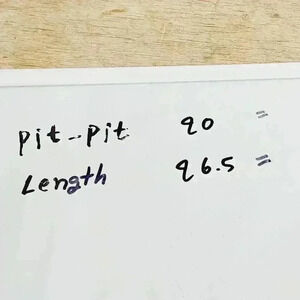 Pit--Pit 20 =
Length 26.5 =